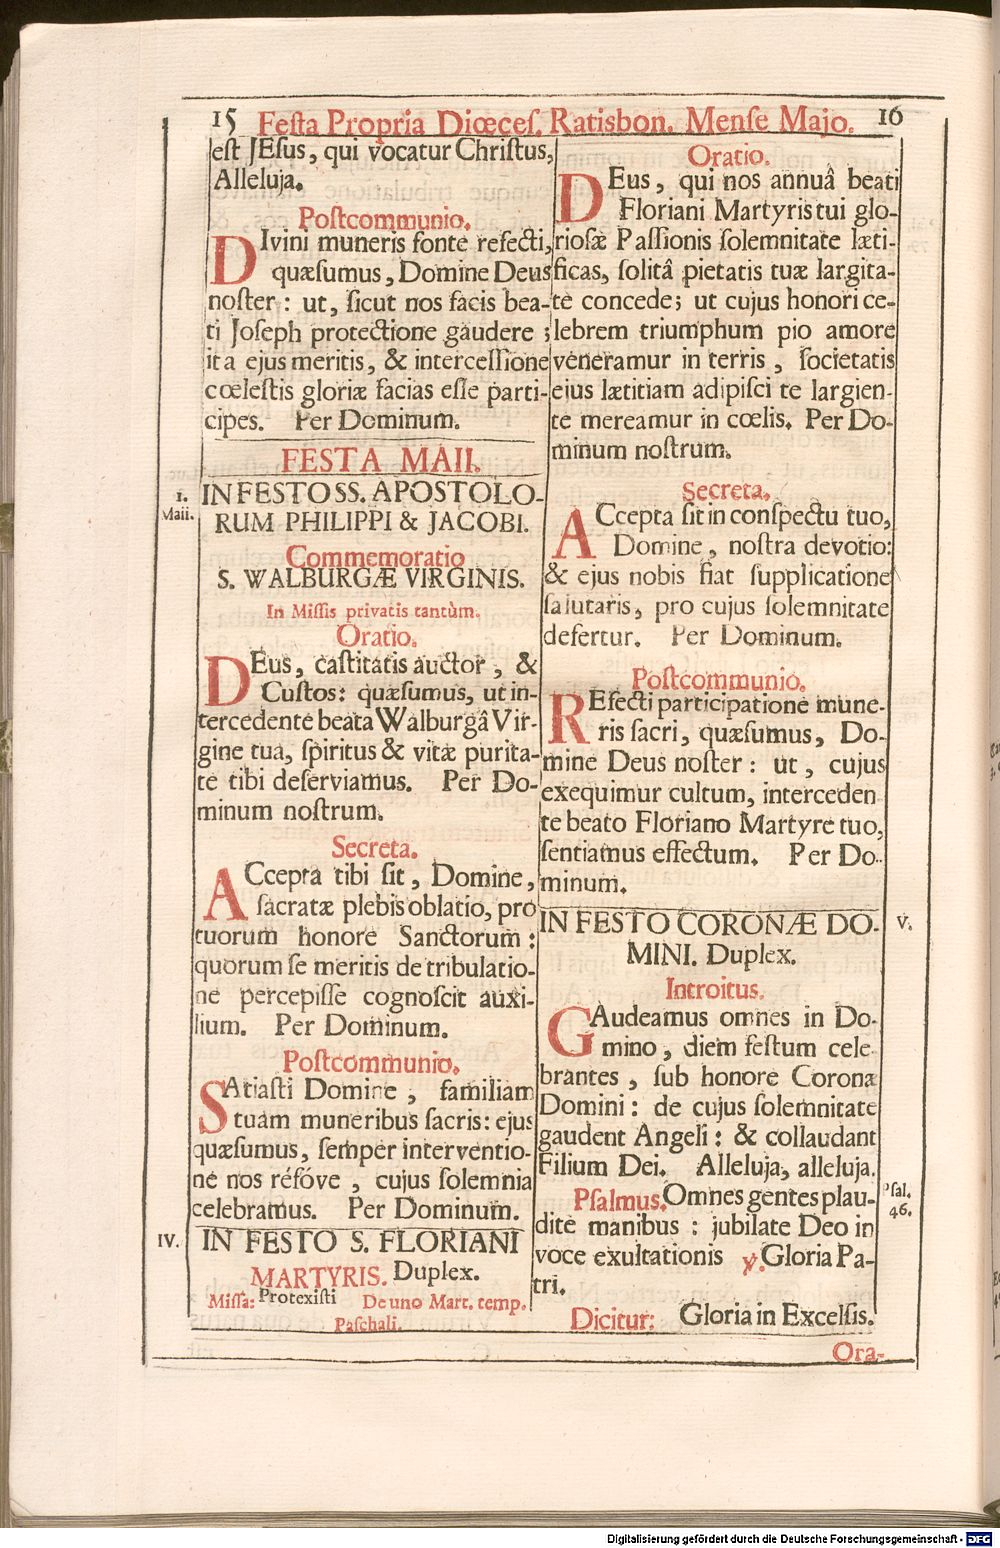 15 Feſta Propria Diœceſ. Ratisbon. Menſe Majo. 16
eſt JEſus, qui vocatur Chriſtus,
Alleluja.
Poſtcommunio.
DIvini muneris fonte refecti,
quæſumus, Domine Deus
noſter: ut, ſicut nos facis bea-
ti Joſeph protectione gaudere;
ita ejus meritis, & interceſſione
cœleſtis gloriæ facias eſſe parti-
cipes. Per Dominum.
FESTA MAII.
1.
Maii.
IN FESTO SS. APOSTOLO-
RUM PHILIPPI & JACOBI.
Commemoratio
S. WALBURGÆ VIRGINIS.
In Miſſis privatis tantùm.
Oratio.
DEus, caſtitatis auctor, &
Cuſtos: quæſumus, ut in-
tercedente beata Walburgâ Vir-
gine tua, ſpiritus & vitæ purita-
te tibi deſerviamus. Per Do-
minum noſtrum.
Secreta.
ACcepta tibi ſit, Domine,
ſacratæ plebis oblatio, pro
tuorum honore Sanctorum:
quorum ſe meritis de tribulatio-
ne percepiſſe cognoſcit auxi-
lium. Per Dominum.
Poſtcommunio.
SAtiaſti Domine, familiam
tuam muneribus ſacris: ejus
quæſumus, ſemper interventio-
ne nos réfóve, cujus ſolemnia
celebramus. Per Dominum.
IV.
IN FESTO S. FLORIANI
MARTYRIS. Duplex.
Miſſa: Protexiſti De uno Mart. temp.
Paſchali.
Oratio.
DEus, qui nos annuâ beati
Floriani Martyris tui glo-
rioſæ Paſſionis ſolemnitate læti-
ficas, ſolitâ pietatis tuæ largita-
te concede; ut cujus honori ce-
lebrem triumphum pio amore
veneramur in terris, ſocietatis
ejus lætitiam adipiſci te largien-
te mereamur in cœlis. Per Do-
minum noſtrum.
Secreta.
ACcepta ſit in conſpectu tuo,
Domine, noſtra devotio:
& ejus nobis fiat ſupplicatione
ſalutaris, pro cujus ſolemnitate
defertur. Per Dominum.
Poſtcommunio.
REfecti participatione mune-
ris ſacri, quæſumus, Do-
mine Deus noſter: ut, cujus
exequimur cultum, interceden
te beato Floriano Martyre tuo,
ſentiamus effectum. Per Do-
minum.
V.
IN FESTO CORONÆ DO-
MINI. Duplex.
Introitus.
GAudeamus omnes in Do-
mino, diem feſtum cele
brantes, ſub honore Coronæ
Domini: de cujus ſolemnitate
gaudent Angeli: & collaudant
Filium Dei. Alleluja, alleluja.
Pſal.
46.
Pſalmus. Omnes gentes plau-
dite manibus: jubilate Deo in
voce exultationis ℣. Gloria Pa-
tri.
Dicitur: Gloria in Excelſis.
Ora-
Digitalisierung gefördert durch die Deutsche Forschungsgemeinschaft - DFG